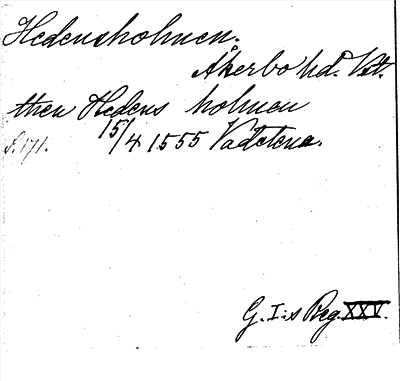 Hedensholmen.
Åkerbo hd. Vst.
then Hedens holmen
S. 171. 15/4 1555 Vadstena.
G. I:s Reg. XXV.